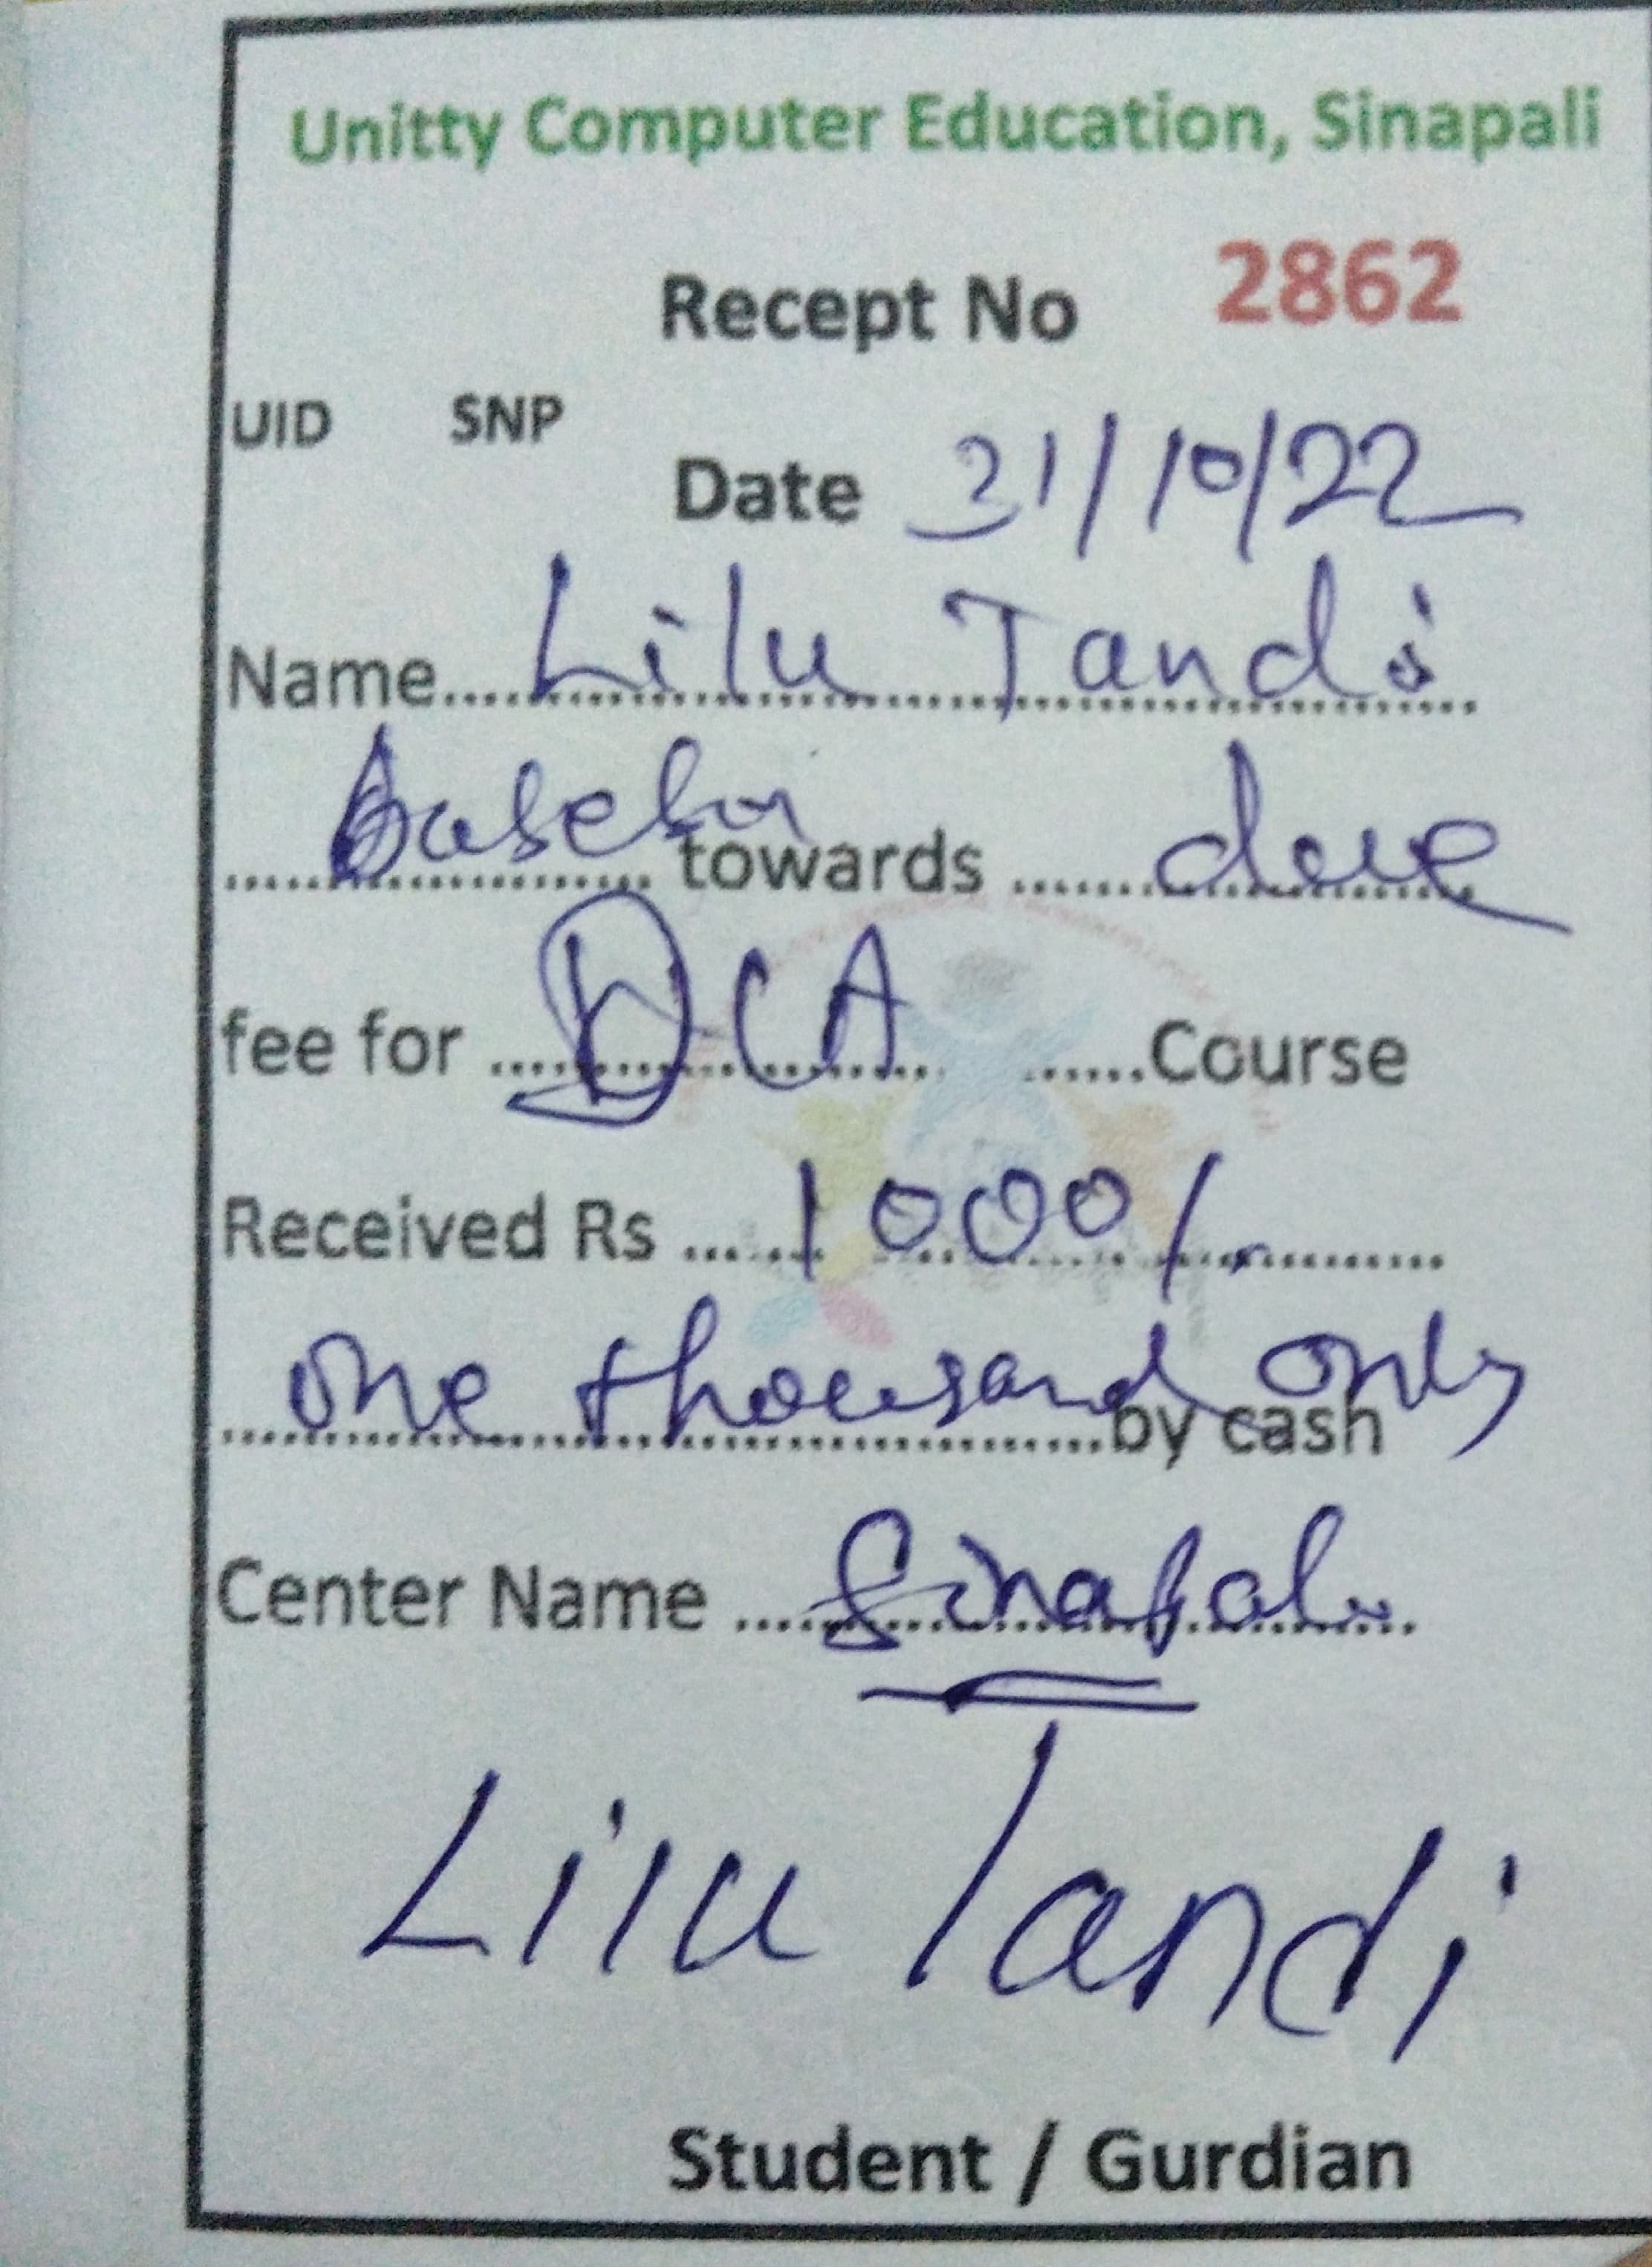 Unitty Computer Education, Sinapali
Recept No 2862
UID SNP
Date 31/10/22
Name.....Lilu Tandi
towards ...... due
fee for ..... DCA ......Course
Received Rs ..... 1000/-
one thousand only by cash
Center Name .... Sinapali
Lilu Tandi
Student / Gurdian